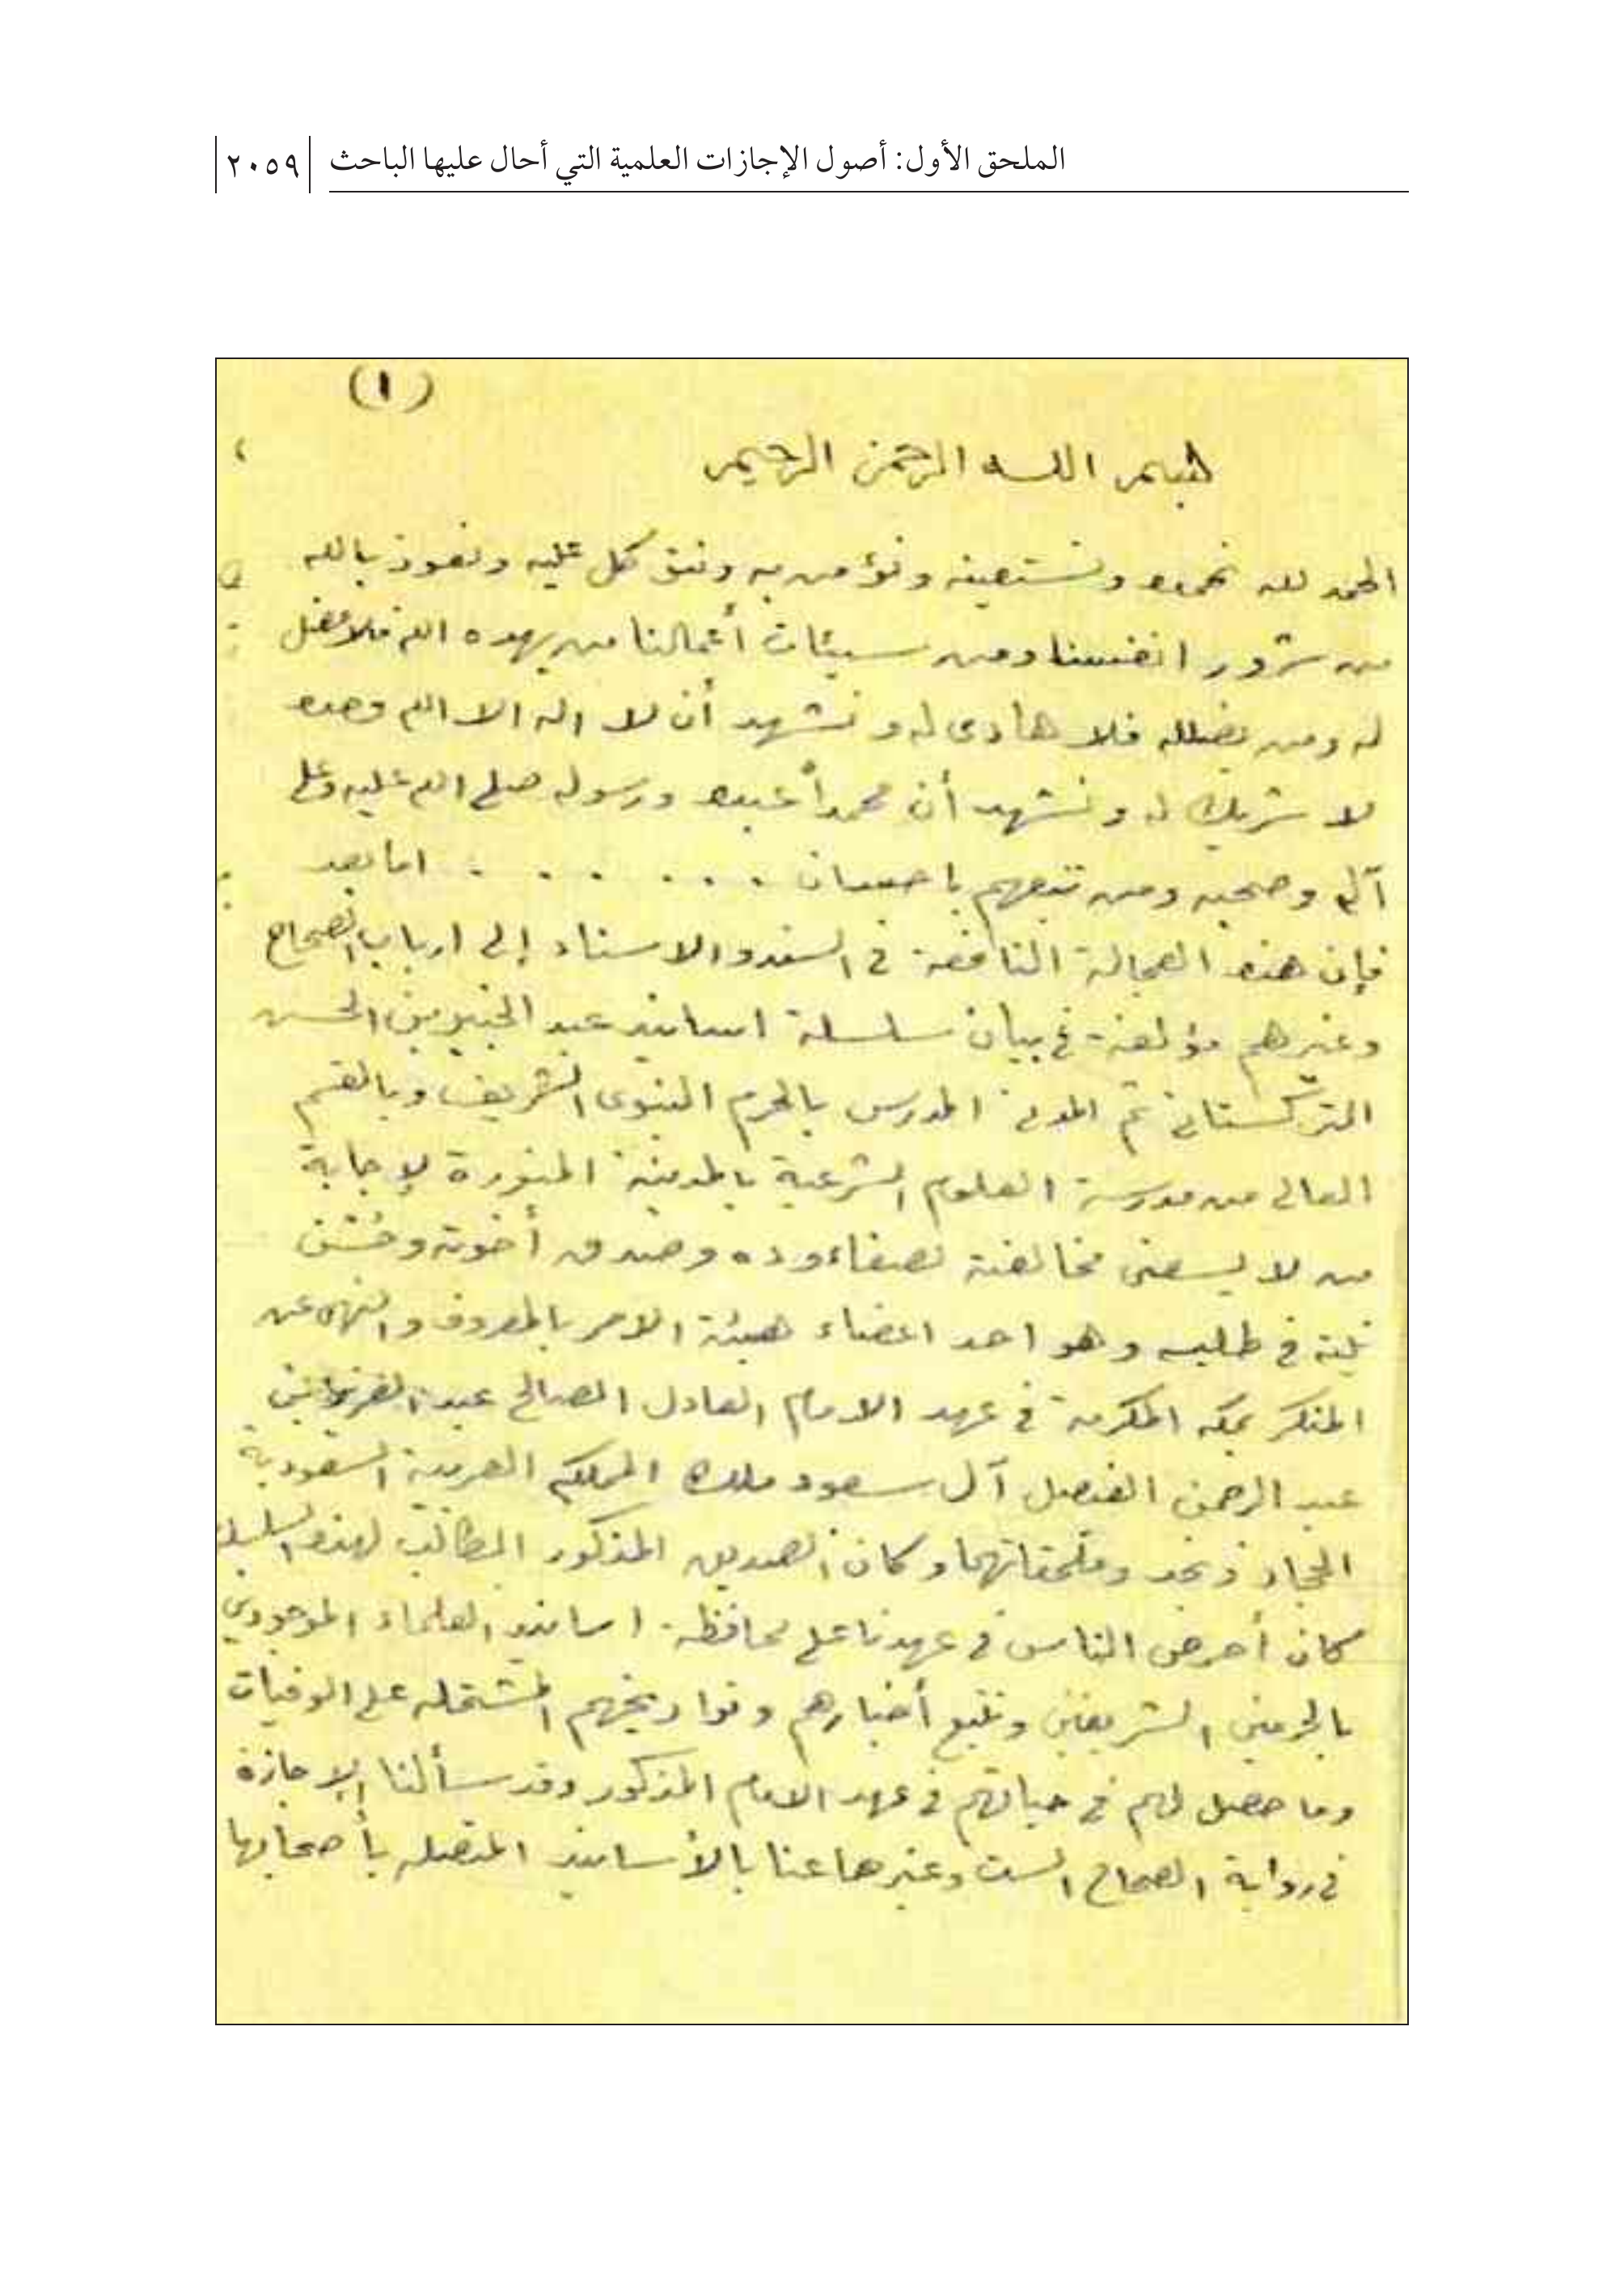 الملحق الأول: أصول الإجازات العلمية التي أحال عليها الباحث ٢٠٥٩
(١)
بسم الله الرحمن الرحيم
الحمد لله نحمده ونستعينه ونؤمن به ونتوكل عليه ونعوذ بالله
من شرور انفسنا ومن سيئات أعمالنا من يهده الله فلا مضل
له ومن يضلله فلا هادى له ونشهد أن لا اله الا الله وحده
لا شريك له ونشهد أن محمداً عبده ورسوله صلى الله عليه وعلى
آله وصحبه ومن تبعهم باحسان . . . . . . . اما بعد
فإن هذه العجالة النافعة في السند والاسناد إلى ارباب الصحاح
وغيرهم مؤلفة في بيان سلسلة اسانيد عبد الخبير بن الحسن
التركستاني ثم المدني المدرس بالحرم النبوى الشريف وبالقسم
العالى من مدرسة العلوم الشرعية بالمدينة المنورة لإجابة
من لا يسعنى مخالفته لصفاء وده وصدق أخوته وحُسْن
نيته في طلبه وهو احد اعضاء هيئة الامر بالمعروف والنهى عن
المنكر بمكه المكرمة في عهد الامام العادل الصالح عبد العزيز بن
عبد الرحمن الفيصل آل سعود ملك المملكه العربية السعودية
الحجاز ونجد وملحقاتهما وكان الصديق المذكور الطالب لهذه
كان أحرص الناس في عهدنا على محافظة اسانيد العلماء الموجودين
بالحرمين الشريفين وتتبع أخبارهم وتواريخهم المشتمله على الوفيات
وما حصل لهم في حياتهم في عهد الامام المذكور وقد سألنا الإجازة
في رواية الصحاح الست وغيرها عنا بالأسانيد المتصله بأصحابها